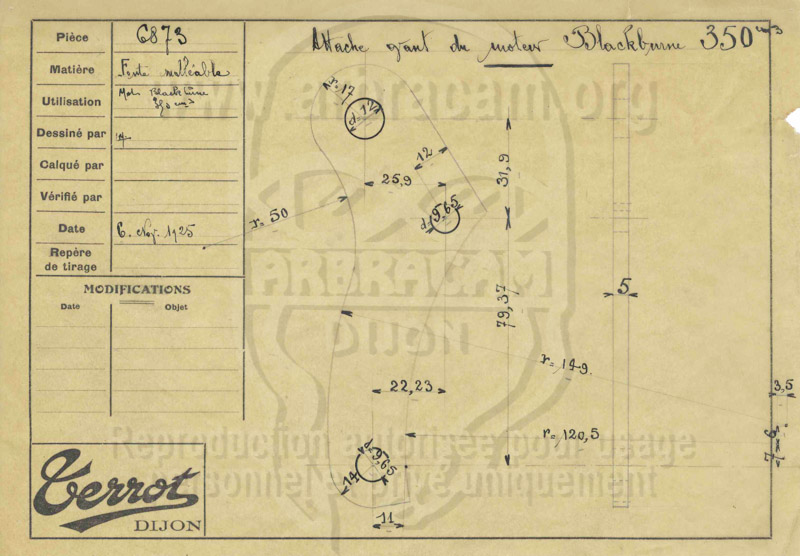 Pièce 6873
Attache g'ant du moteur Blackburne 350 cm3
Matière Fonte malléable
Utilisation Moto Blackburne
350 cm3
Dessiné par
Calqué par
Vérifié par
Date 6. Nov. 1925
Repère
de tirage
MODIFICATIONS
Date Objet
www.arbracam.org
r=17
d=12
12
25,9
31,9
d=9,65
r= 50
ARBRACAM
DIJON
79,37
5
r= 149.
22,23
3,5
r= 120,5
7=6
d=9,65
14
11
Reproduction autorisée pour usage
personnel et privé uniquement
Terrot
DIJON